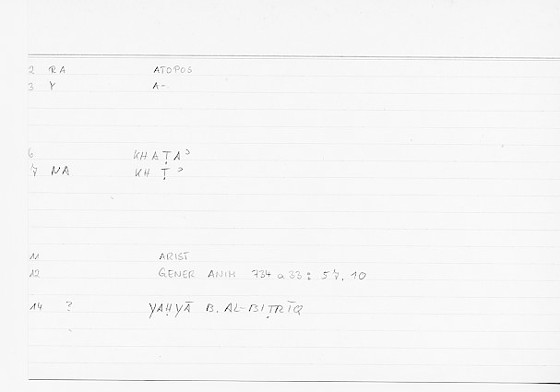 2 RA ATOPOS
3 Y A-
6 KHAṬAʾ
7 NA KH Ṭ ʾ
11 ARIST
12 GENER ANIM 734 a 33 : 57, 10
14 ? YAḤYĀ B. AL-BIṬRĪQ